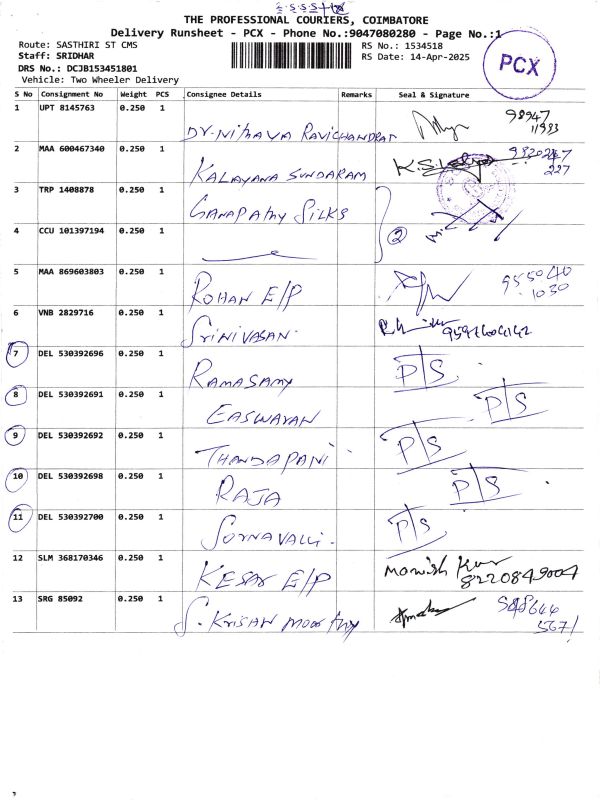 THE PROFESSIONAL COURIERS, COIMBATORE
Delivery Runsheet - PCX - Phone No.:9047080280 - Page No.:1
Route: SASTHIRI ST CMS RS No.: 1534518
Staff: SRIDHAR RS Date: 14-Apr-2025
DRS No.: DCJB153451801
Vehicle: Two Wheeler Delivery
PCX
S No Consignment No Weight PCS Consignee Details Remarks Seal & Signature
1 UPT 8145763 0.250 1 Dr. Nithava Ravichandran 98947
11933
2 MAA 600467340 0.250 1 KALAYANA SUNDARAM K.S.
227
3 TRP 1408878 0.250 1 GANAPATHY SILKS
4 CCU 101397194 0.250 1 2
5 MAA 869603803 0.250 1 ROHAN E/P 955040
1030
6 VNB 2829716 0.250 1 SRINIVASAN
7 DEL 530392696 0.250 1 RAMASAMY P/S
8 DEL 530392691 0.250 1 EASWARAN P/S
9 DEL 530392692 0.250 1 THANDAPANI P/S
10 DEL 530392698 0.250 1 RAJA P/S
11 DEL 530392700 0.250 1 SORNAVALLI. P/S
12 SLM 368170346 0.250 1 KESAR E/P Monish Kumar
8220849004
13 SRG 85092 0.250 1 S. KRISHNAMOORTHY